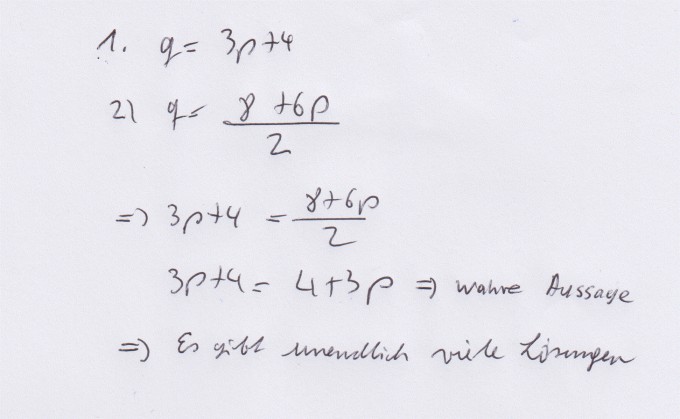 1. q = 3p+4
2) q = (8+6p)/2
=> 3p+4 = (8+6p)/2
3p+4 = 4+3p => wahre Aussage
=> Es gibt unendlich viele Lösungen